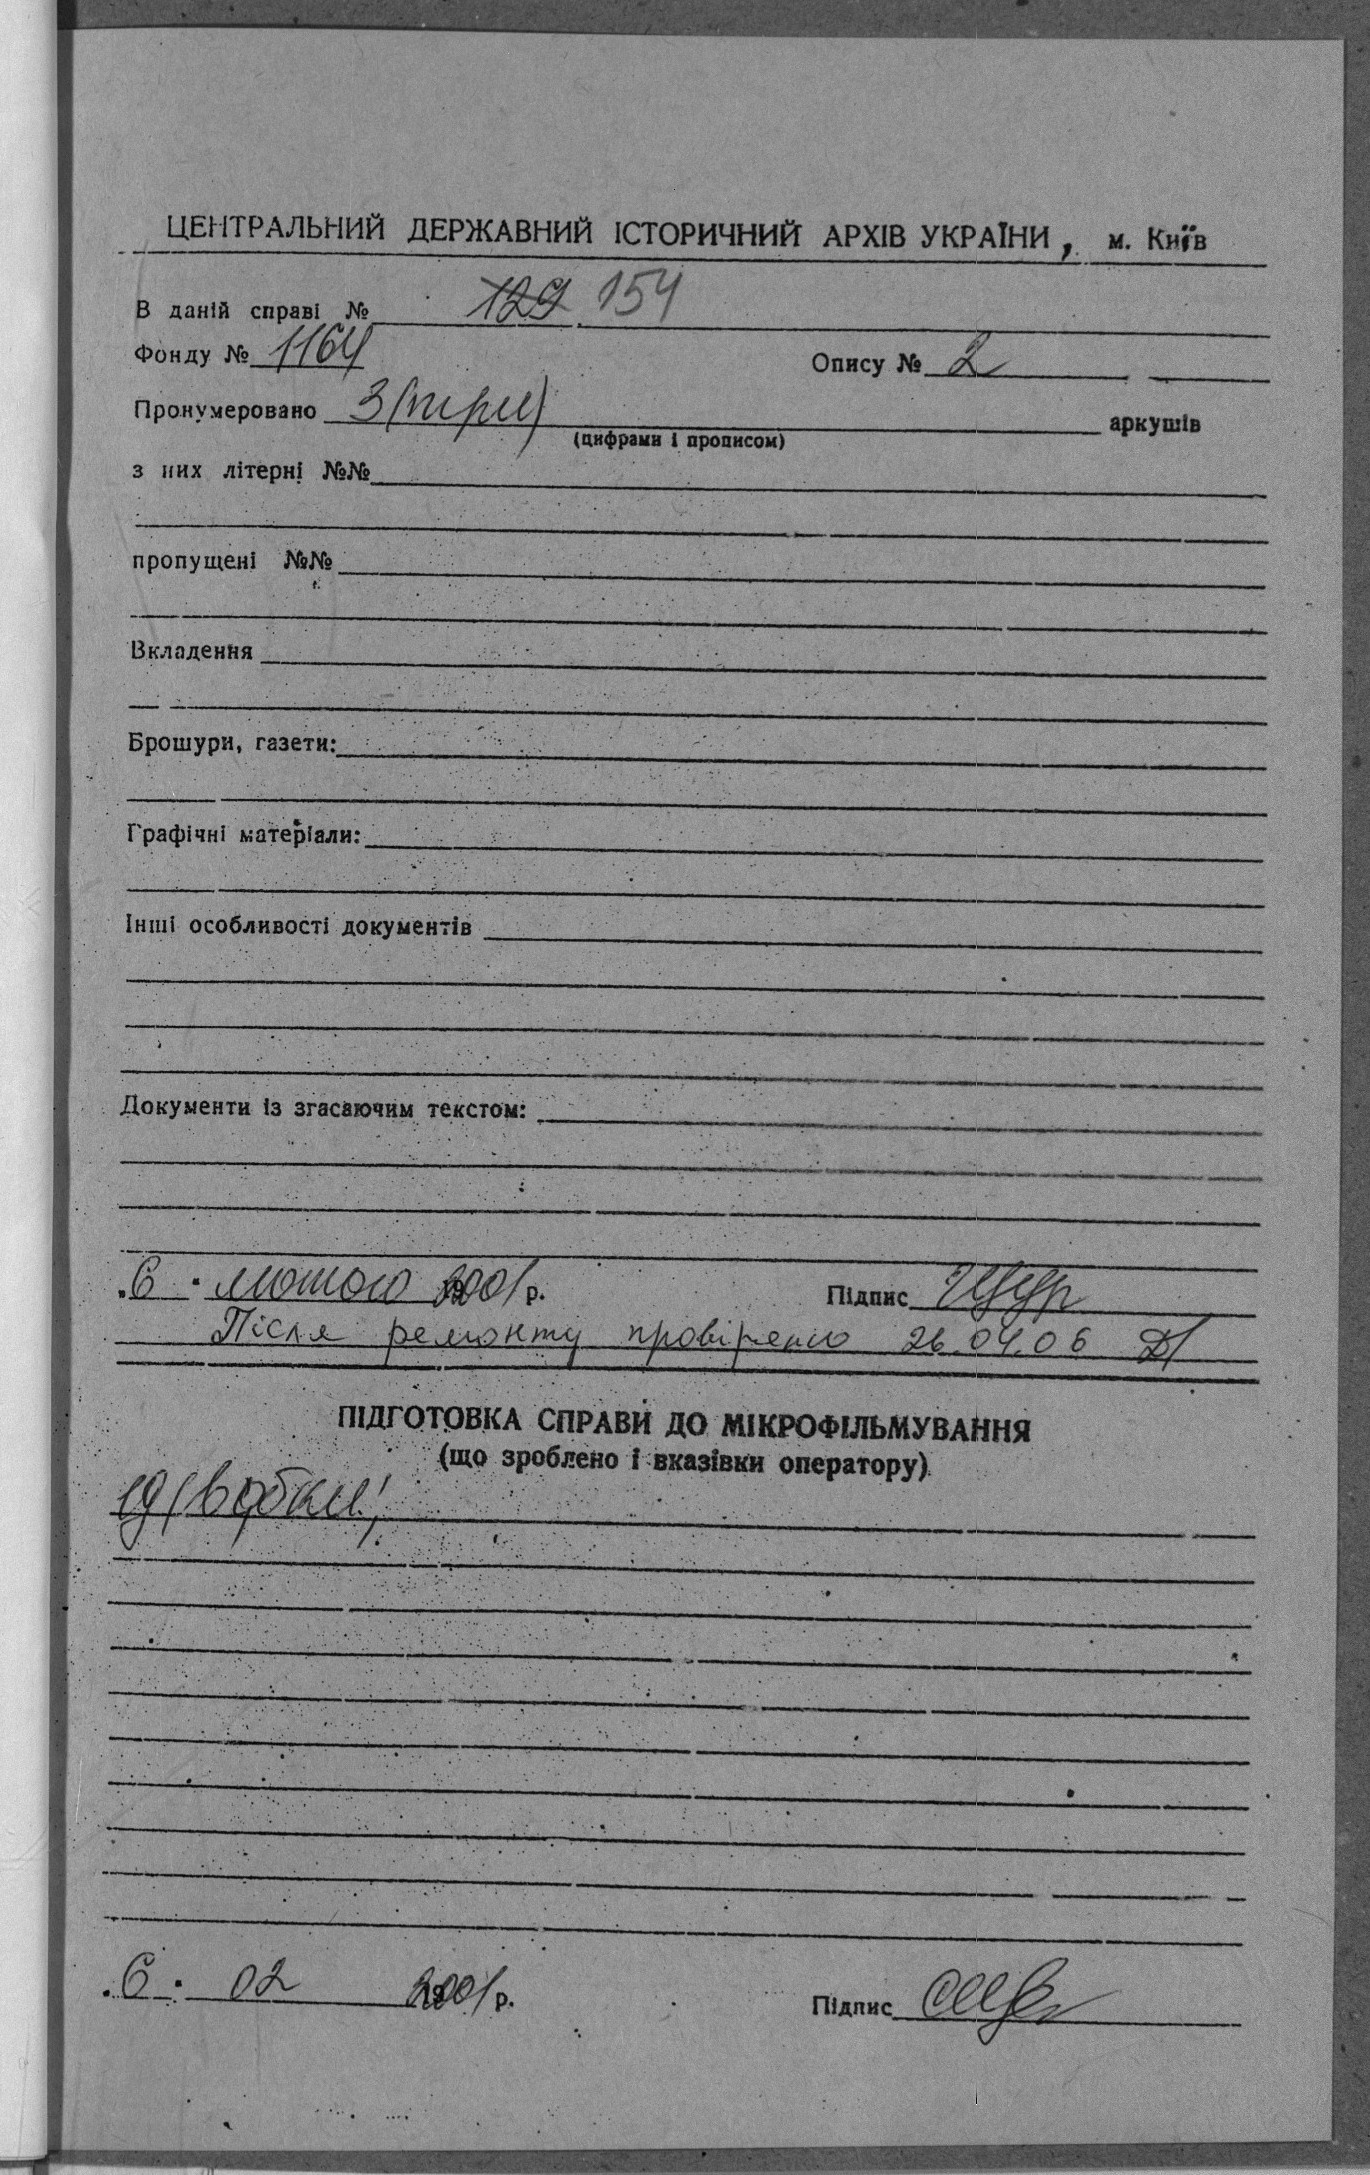 ЦЕНТРАЛЬНИЙ ДЕРЖАВНИЙ ІСТОРИЧНИЙ АРХІВ УКРАЇНИ, м. Київ
В даній справі № 129 154
Фонду № 1164 Опису № 2
Пронумеровано 3 (три) аркушів
(цифрами і прописом)
з них літерні №№
пропущені №№
Вкладення
Брошури, газети:
Графічні матеріали:
Інші особливості документів
Документи із згасаючим текстом:
6 лютого 2001 р. Підпис
Після ремонту провірено 26.04.06
ПІДГОТОВКА СПРАВИ ДО МІКРОФІЛЬМУВАННЯ
(що зроблено і вказівки оператору)
6. 02 2001 р. Підпис